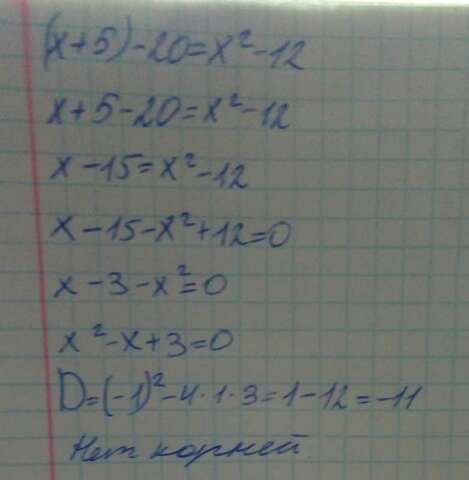 (x+5)-20=x²-12
x+5-20=x²-12
x-15=x²-12
x-15-x²+12=0
x-3-x²=0
x²-x+3=0
D=(-1)²-4·1·3=1-12=-11
Нет корней